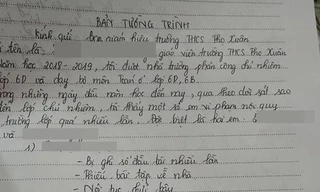 BẢN TƯỜNG TRÌNH
Kính gửi: Ban giám hiệu trường THCS Thọ Xuân
tên là: giáo viên trường THCS Thọ Xuân
Năm học 2018-2019, tôi được nhà trường phân công chủ nhiệm
lớp 6D và dạy bộ môn Toán ở lớp 6D, 6B.
Trong những ngày đầu năm học đến nay, qua theo dõi sát sao
tên lớp chủ nhiệm, tôi thấy một số em vi phạm nội quy
trường lớp quá nhiều lần. Đặc biệt là hai em:
và
1)
- Bị ghi sổ đầu bài nhiều lần
- Thiếu bài tập về nhà
- Nói tục